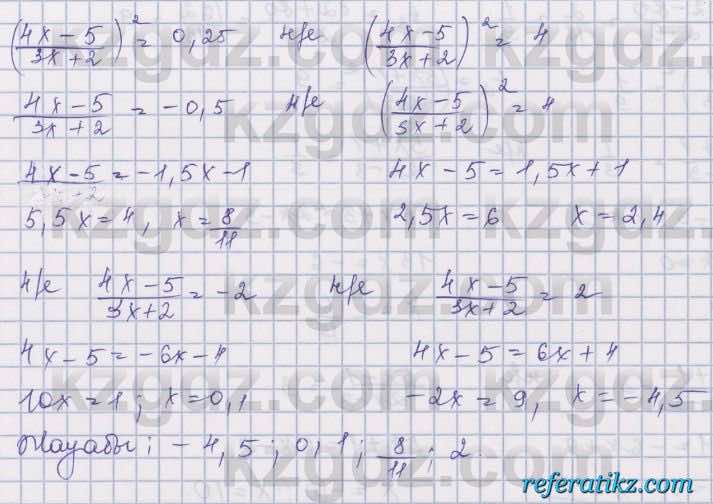 (4x-5/3x+2)² = 0,25 н/е (4x-5/3x+2)² = 4
4x-5/3x+2 = -0,5 н/е (4x-5/3x+2)² = 4
4x-5 = -1,5x-1 4x-5 = 1,5x+1
5,5x=4, x=8/11 2,5x=6 x=2,4
н/е 4x-5/3x+2 = -2 н/е 4x-5/3x+2 = 2
4x-5 = -6x-4 4x-5 = 6x+4
10x=1; x=0,1 -2x=9, x=-4,5
Жауабы: -4,5; 0,1; 8/11; 2
kzgdz.com
referatikz.com